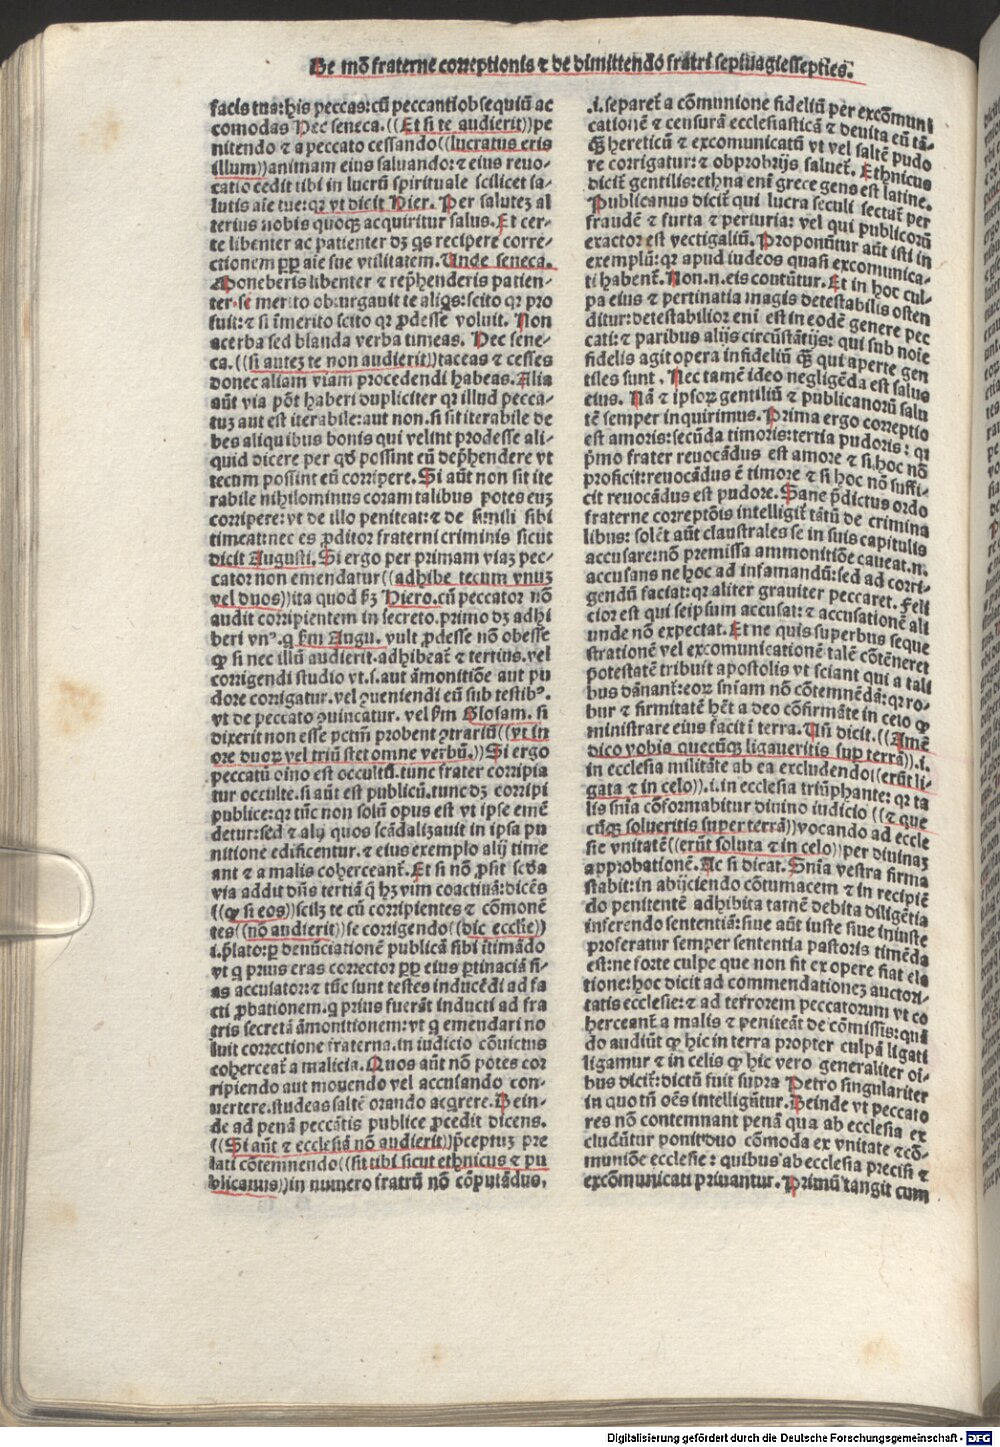 De mō fraterne correptionis ⁊ de dimittendo fratri septuagiessepties.
facis tua: his peccas: cū peccanti obsequiū ac
comodas Hec seneca. ((Et si te audierit)) pe
nitendo ⁊ a peccato cessando ((lucratus eris
illum)) animam eius saluando: ⁊ eius reuo-
catio cedit tibi in lucrū spirituale scilicet sa-
lutis aīe tue: qꝛ vt dicit Hier. Per saluteꝫ al
terius nobis quoqꝫ acquiritur salus. Et cer-
te libenter ac patienter dꝫ qs recipere corre-
ctionem ꝓp aīe sue vtilitatem. Unde seneca.
Moneberis libenter ⁊ rep̄henderis patien-
ter. se merito obiurgauit te aliqs: scito qꝛ pro
fuit: ⁊ si īmerito scito qꝛ ꝓdesse voluit. Non
acerba sed blanda verba timeas. Hec sene-
ca. ((si auteꝫ te non audierit)) taceas ⁊ cesses
donec aliam viam procedendi habeas. Alia
aūt via pōt haberi dupliciter qꝛ illud pecca-
tuꝫ aut est iterabile: aut non. si sit iterabile de
bes aliquibus bonis qui velint prodesse ali-
quid dicere per qđ possint eū dep̄hendere vt
tecum possint eū corripere. Si aūt non sit ite
rabile nihilominus coram talibus potes euꝫ
corripere: vt de illo peniteat: ⁊ de simili sibi
timeat: nec es ꝓditor fraterni criminis sicut
dicit Augusti. Si ergo per primam viaꝫ pec-
cator non emendatur ((adhibe tecum vnuꝫ
vel duos)) ita quod ẜꝫ Hiero. cū peccator nō
audit corripientem in secreto. primo dꝫ adhi
beri vnꝰ. q ẜm Augu. vult ꝓdesse nō obesse
ꝙ si nec illū audierit. adhibeat̄ ⁊ tertius. vel
corrigendi studio vt. s. aut āmonitiōe aut pu
dore corrigatur. vel ꝯueniendi eū sub testibꝰ.
vt de peccato ꝯuincatur. vel ẜm Glosam. si
dixerit non esse pctm̄ probent ꝯtrariū ((vt in
ore duoꝝ vel triū stet omne verbū.)) Si ergo
peccatū oīno est occultū. tunc frater corripia
tur occulte. si aūt est publicū. tunc dꝫ corripi
publice: qꝛ tūc non solū opus est vt ipse emē
detur: sed ⁊ alij quos scādalizauit in ipsa pu
nitione edificentur. ⁊ eius exemplo alij time
ant ⁊ a malis coherceant̄. Et si nō ꝓsit scđa
via addit dn̄s tertiā q̄ hꝫ vim coactiuā: dicēs
((ꝙ si eos)) scilꝫ te cū corripientes ⁊ cōmonē
tes ((nō audierit)) se corrigendo ((dic ecclie))
i. p̄lato: ꝑ denūciationē publicā sibi ītimādo
vt q prius eras corrector ꝓp eius ꝑtinaciā fi-
as accusator: ⁊ tūc sunt testes inducēdi ad fa
cti ꝓbationem. q prius fuerāt inducti ad fra
tris secretā āmonitionem: vt q emendari no
luit correctione fraterna. in iudicio cōuictus
coherceat̄ a malicia. Quos aūt nō potes cor
ripiendo aut mouendo vel accusando con-
uertere. studeas saltē orando acq̄rere. Dein-
de ad penā peccātis publice ꝓcedit dicens.
((Si aūt ⁊ ecclesiā nō audierit)) p̄ceptuꝫ pre
lati cōtemnendo ((sit tibi sicut ethnicus ⁊ pu
blicanus)) in numero fratrū nō cōputādus.
.i. separet̄ a cōmunione fideliū per excōmuni
cationē ⁊ censurā ecclesiasticā ⁊ deuita eū tā-
ꝙ hereticū ⁊ excomunicatū vt vel saltē pudo
re corrigatur: ⁊ obprobrijs saluet̄. Ethnicus
dicit̄ gentilis: ethna enī grece gens est latine.
Publicanus dicit̄ qui lucra seculi sectat̄ per
fraudē ⁊ furta ⁊ periuria: vel qui publicorū
exactor est vectigaliū. Proponūtur aūt isti in
exemplū: qꝛ apud iudeos quasi excomunica-
ti habent̄. Non. n. eis contūtur. Et in hoc cul-
pa eius ⁊ pertinatia magis detestabilis osten
ditur: detestabilior enī est in eodē genere pec
cati: ⁊ paribus alijs circūstātijs: qui sub noīe
fidelis agit opera infideliū ꝙ qui aperte gen
tiles sunt. Nec tamē ideo negligēda est salus
eius. Nā ⁊ ipsoꝝ gentiliū ⁊ publicanorū salu
tē semper inquirimus. Prima ergo correptio
est amoris: secūda timoris: tertia pudoris: qꝛ
p̄mo frater reuocādus est amore ⁊ si hoc nō
proficit: reuocādus ē timore ⁊ si hoc nō suffi-
cit reuocādus est pudore. Sane p̄dictus ordo
fraterne correptōis intelligit̄ tātū de crimina
libus: solēt aūt claustrales se in suis capitulis
accusare: nō premissa ammonitiōe caueat. n.
accusans ne hoc ad infamandū: sed ad corri-
gendū faciat: qꝛ aliter grauiter peccaret. Feli
cior est qui seipsum accusat: ⁊ accusationē ali
unde nō expectat. Et ne quis superbus seque
strationē vel excomunicationē talē cōtēneret
potestatē tribuit apostolis vt sciant qui a tali
bus dānant̄: eoꝝ sn̄iam nō cōtemnēdā: qꝛ ro-
bur ⁊ firmitatē hēt a deo cōfirmāte in celo ꝙ
ministrare eius facit ī terra. Un̄ dicit. ((Amē
dico vobis quecūqꝫ ligaueritis suꝑ terrā)). i.
in ecclesia militāte ab ea excludendo ((erūt li-
gata ⁊ in celo)). i. in ecclesia triūphante: qꝛ ta
lis sn̄ia cōformabitur diuino iudicio ((⁊ que
cūqꝫ solueritis super terrā)) vocando ad eccle
sie vnitatē ((erūt soluta ⁊ in celo)) per diuinaꝫ
approbationē. Ac si dicat. Sn̄ia vestra firma
stabit: in abijciendo cōtumacem ⁊ in recipiē
do penitentē adhibita tamē debita diligētia
inferendo sententiā: siue aūt iuste siue iniuste
proferatur semper sententia pastoris timēda
est: ne forte culpe que non fit ex opere fiat ela
tione: hoc dicit ad commendationeꝫ auctori-
tatis ecclesie: ⁊ ad terrorem peccatorum vt co
herceant̄ a malis ⁊ peniteāt de cōmissis: quā
do audiūt ꝙ hic in terra propter culpā ligati
ligamur ⁊ in celis ꝙ hic vero generaliter oī-
bus dicit̄: dictū fuit supra Petro singulariter
in quo tn̄ oēs intelligūtur. Deinde vt peccato
res nō contemnant penā qua ab ecclesia ex
cludūtur ponit duo cōmoda ex vnitate ⁊ cō-
muniōe ecclesie: quibus ab ecclesia precisi ⁊
excōmunicati priuantur. Primū tangit cum
Digitalisierung gefördert durch die Deutsche Forschungsgemeinschaft - DFG